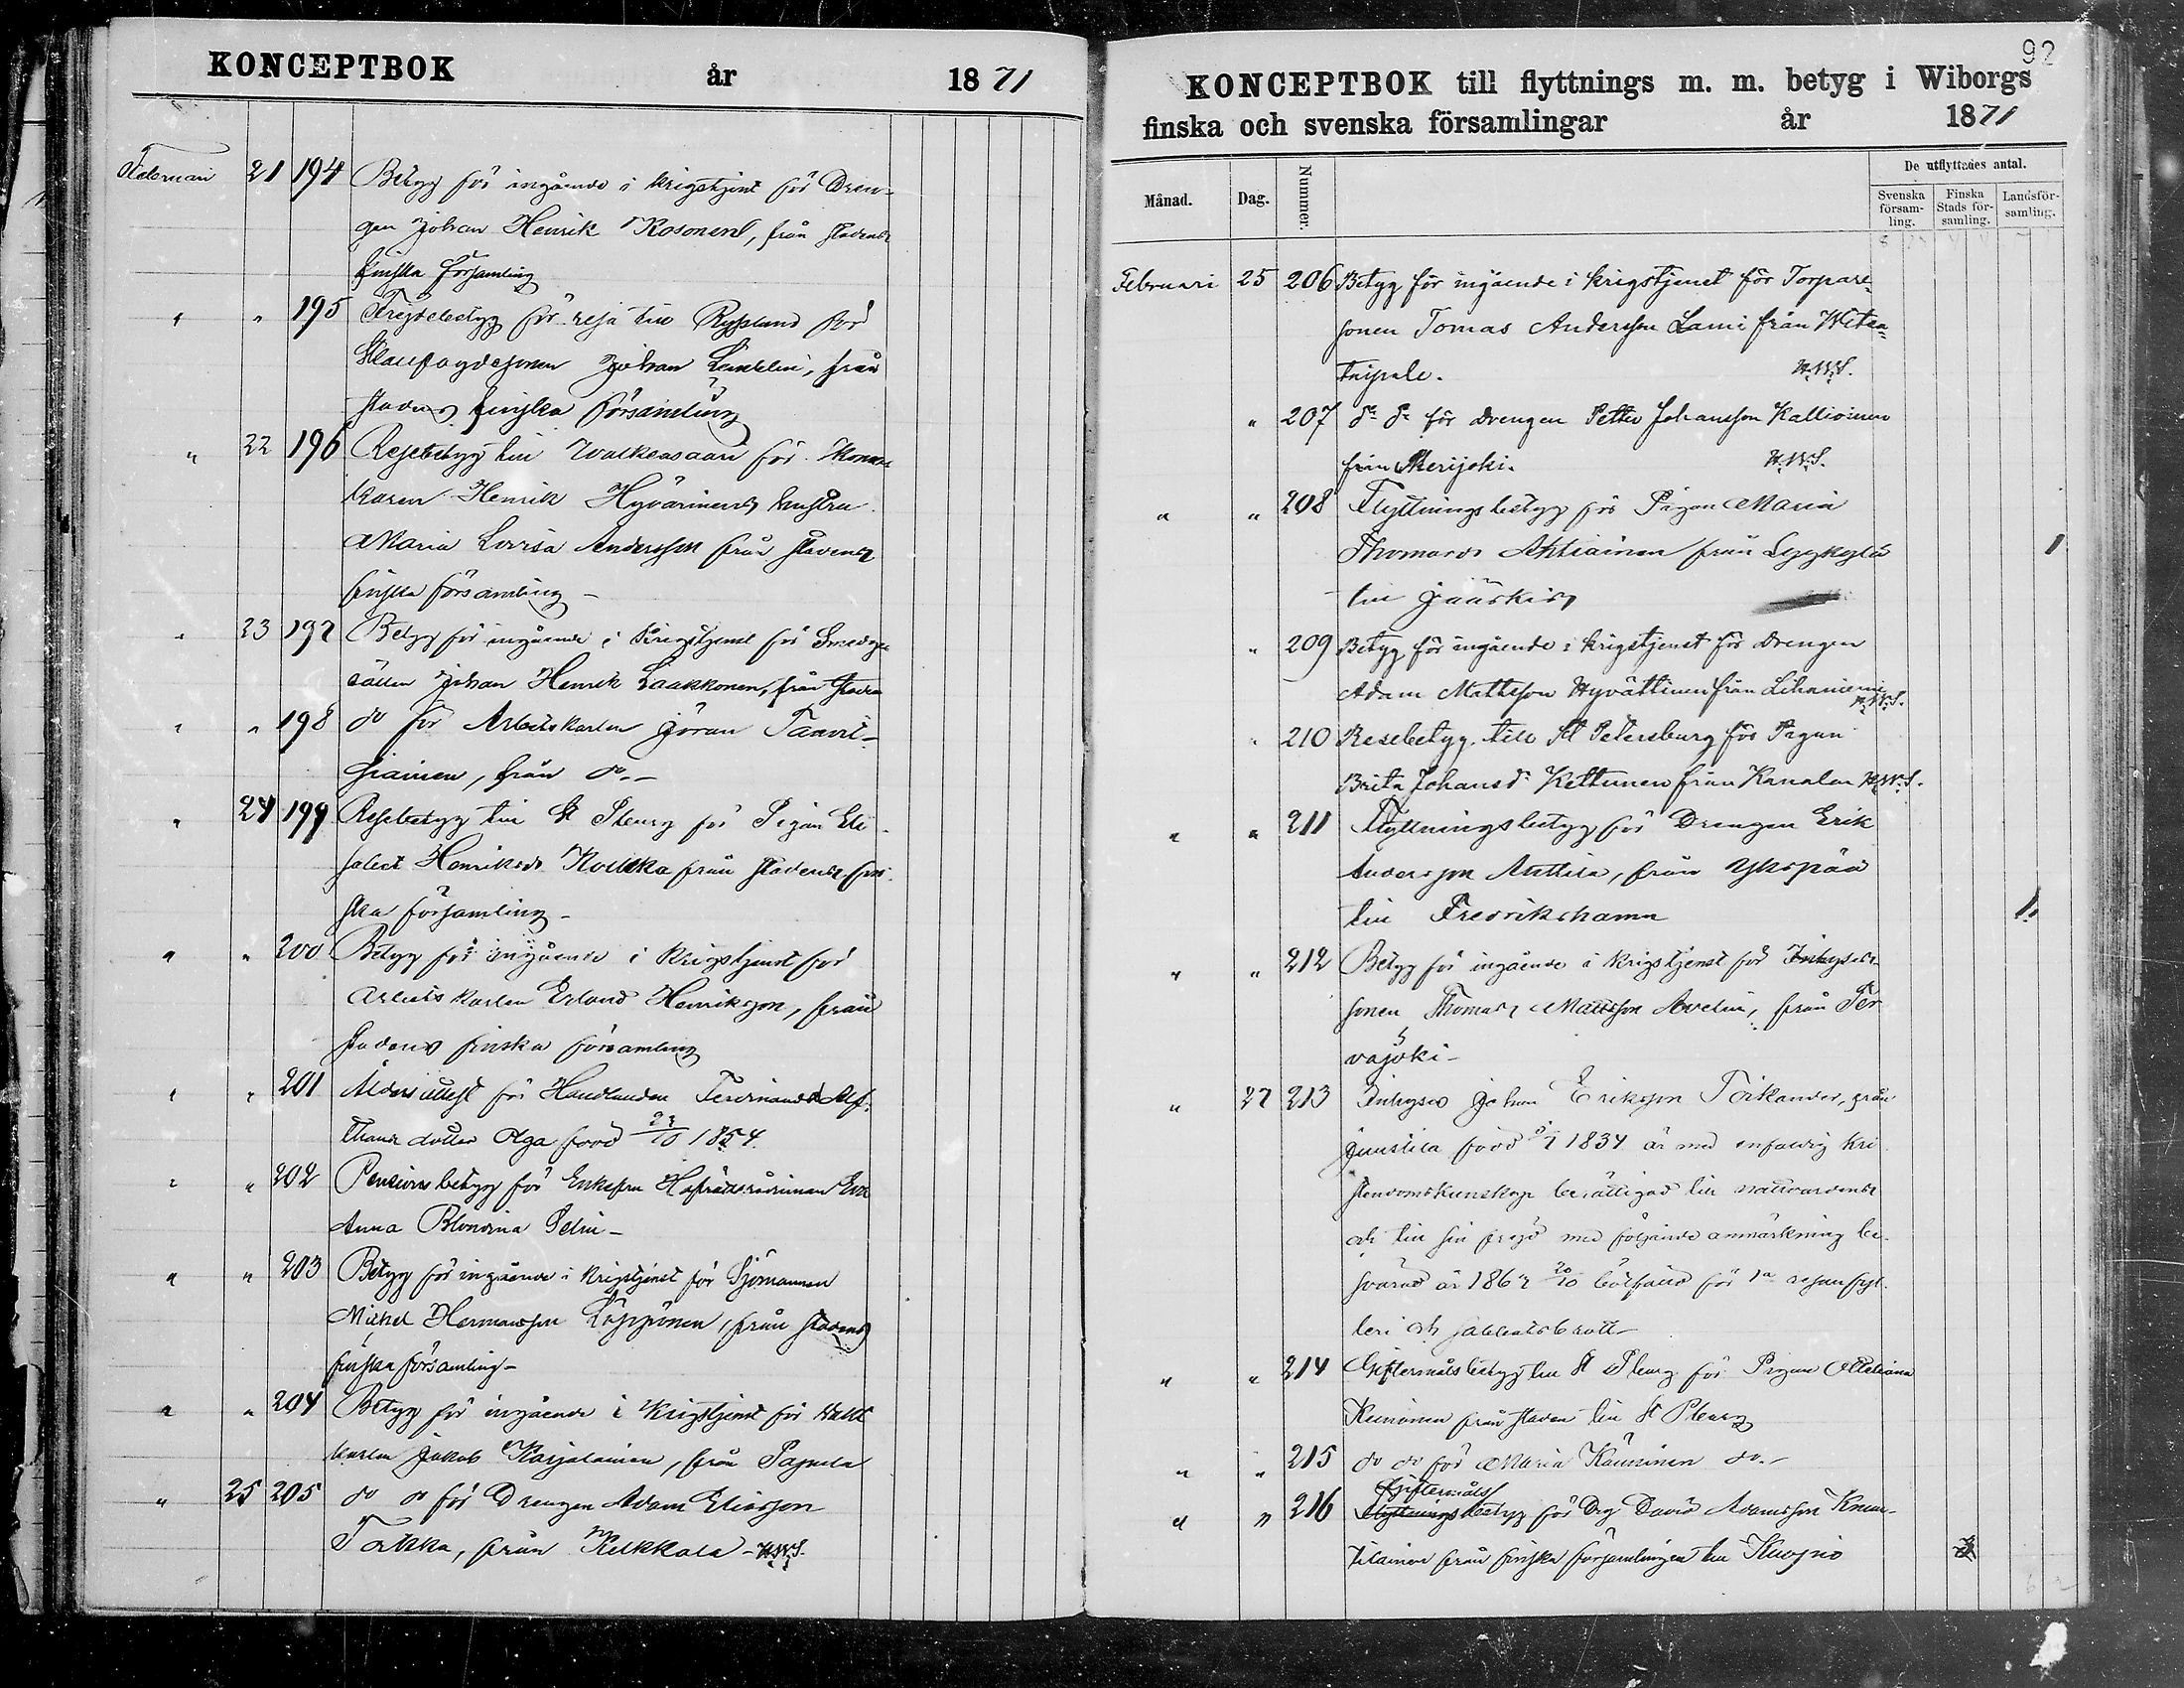 KONCEPTBOK år 1871
Februari 21 194 Betyg för ingående i krigstjenst för Dren-
gen Johan Henrik Kosonen, från stadens
finska församling
" " 195 Frejdebetyg för resa till Ryssland för
Johan, från
stadens finska församling
" 22 196 Resebetyg till Walkeasaari för
karen Henrik Hyvärinens hustru
Maria Lovisa Andersson från stadens
finska församling -
" 23 197 Betyg för ingående i krigstjenst för Smedsge-
sällen Johan Henrik Laakkonen, från staden
" " 198 do för Arbetskarlen Göran Tanvit-
siainen, från do. -
" 24 199 Resebetyg till St Pburg för Pigan Eli-
sabet Henriksdr från stadens fin-
ska församling -
" " 200 Betyg för ingående i krigstjenst för
Arbetskarlen Erland Henriksson, från
stadens finska församling
" " 201 Åldersattest för Handlanden Ferdinand Alf-
thans dotter Olga född 23/10 1854.
" " 202 Pensionsbetyg för Enkefru Eva
Anna Blondina
" " 203 Betyg för ingående i krigstjenst för Sjömannen
Mickel Hermansson Löppönen, från stadens
finska församling -
" " 204 Betyg för ingående i krigstjenst för
karlen Jakob Karjalainen, från Papula
" 25 205 do do för Drengen Adam Eliasson
Torkka, från Kelkkala - H.W.S.
92
KONCEPTBOK till flyttnings m. m. betyg i Wiborgs
finska och svenska församlingar år 1871
Månad. Dag. Nummer. De utflyttades antal.
Svenska försam-ling. Finska Stads för-samling. Landsför-samling.
Februari 25 206 Betyg för ingående i krigstjenst för Torpare-
sonen Tomas Andersson Lami från Wita-
taipale. H.W.S.
" 207 do do för drengen Petter Johansson Kallioinen
från Merijoki. H.W.S.
" " 208 Flyttningsbetyg för Pigan Maria
Thomasdr Ahtiainen från Lyykylä 1
till Jääskis
" 209 Betyg för ingående i krigstjenst för drengen
Adam Mattsson Hyvättinen från Lihaniemi H.W.S.
" 210 Resebetyg till St Petersburg för Pigan
Brita Johansdr Kettunen från Kanalen H.W.S.
" " 211 Flyttningsbetyg för Drengen Erik
Andersson Anttila, från Ykspää
till Fredrikshamn 1.
" " 212 Betyg för ingående i krigstjenst för Inhyses-
sonen Thomas Mattsson Avelin, från Ter-
vajoki -
" 27 213 Inhyses Johan Eriksson Törkander, från
Juustila född 1834 är med enfaldig kri-
stendomskunskap berättigad till nattvardens
och till sin frejd med följande anmärkning be-
svärad år 1867 20/10 bötfälld för 1a resan fyl-
leri och sabbatsbrott -
" " 214 Giftermålsbetyg till St Pburg för Pigan
från staden till St Pburg
" " 215 do do för Maria do. -
" " 216 Giftermåls
Flyttningsbetyg för Drg David Adamsson
från finska församlingen till Kuopio